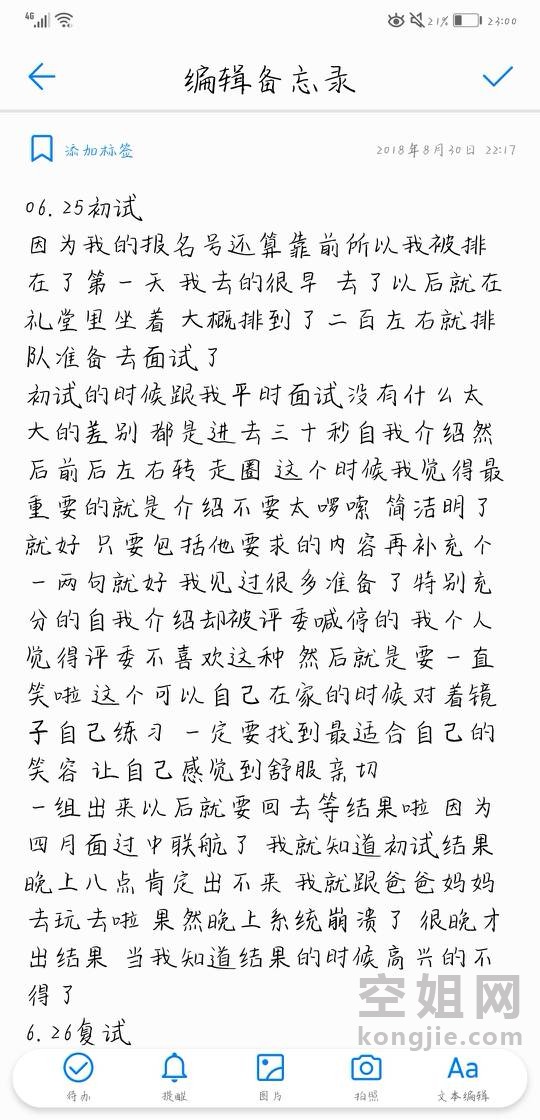 4G 21% 23:00
编辑备忘录
添加标签 2018年8月30日 22:17
06.25初试
因为我的报名号还算靠前所以我被排
在了第一天 我去的很早 去了以后就在
礼堂里坐着 大概排到了二百左右就排
队准备去面试了
初试的时候跟我平时面试没有什么太
大的差别 都是进去三十秒自我介绍然
后前后左右转 走圈 这个时候我觉得最
重要的就是介绍不要太啰嗦 简洁明了
就好 只要包括他要求的内容再补充个
一两句就好 我见过很多准备了特别充
分的自我介绍却被评委喊停的 我个人
觉得评委不喜欢这种 然后就是要一直
笑啦 这个可以自己在家的时候对着镜
子自己练习 一定要找到最适合自己的
笑容 让自己感觉到舒服亲切
一组出来以后就要回去等结果啦 因为
四月面过中联航了 我就知道初试结果
晚上八点肯定出不来 我就跟爸爸妈妈
去玩去啦 果然晚上系统崩溃了 很晚才
出结果 当我知道结果的时候高兴的不
得了
6.26复试
空姐网
kongjie.com
待办 提醒 图片 拍照 文本编辑
Aa